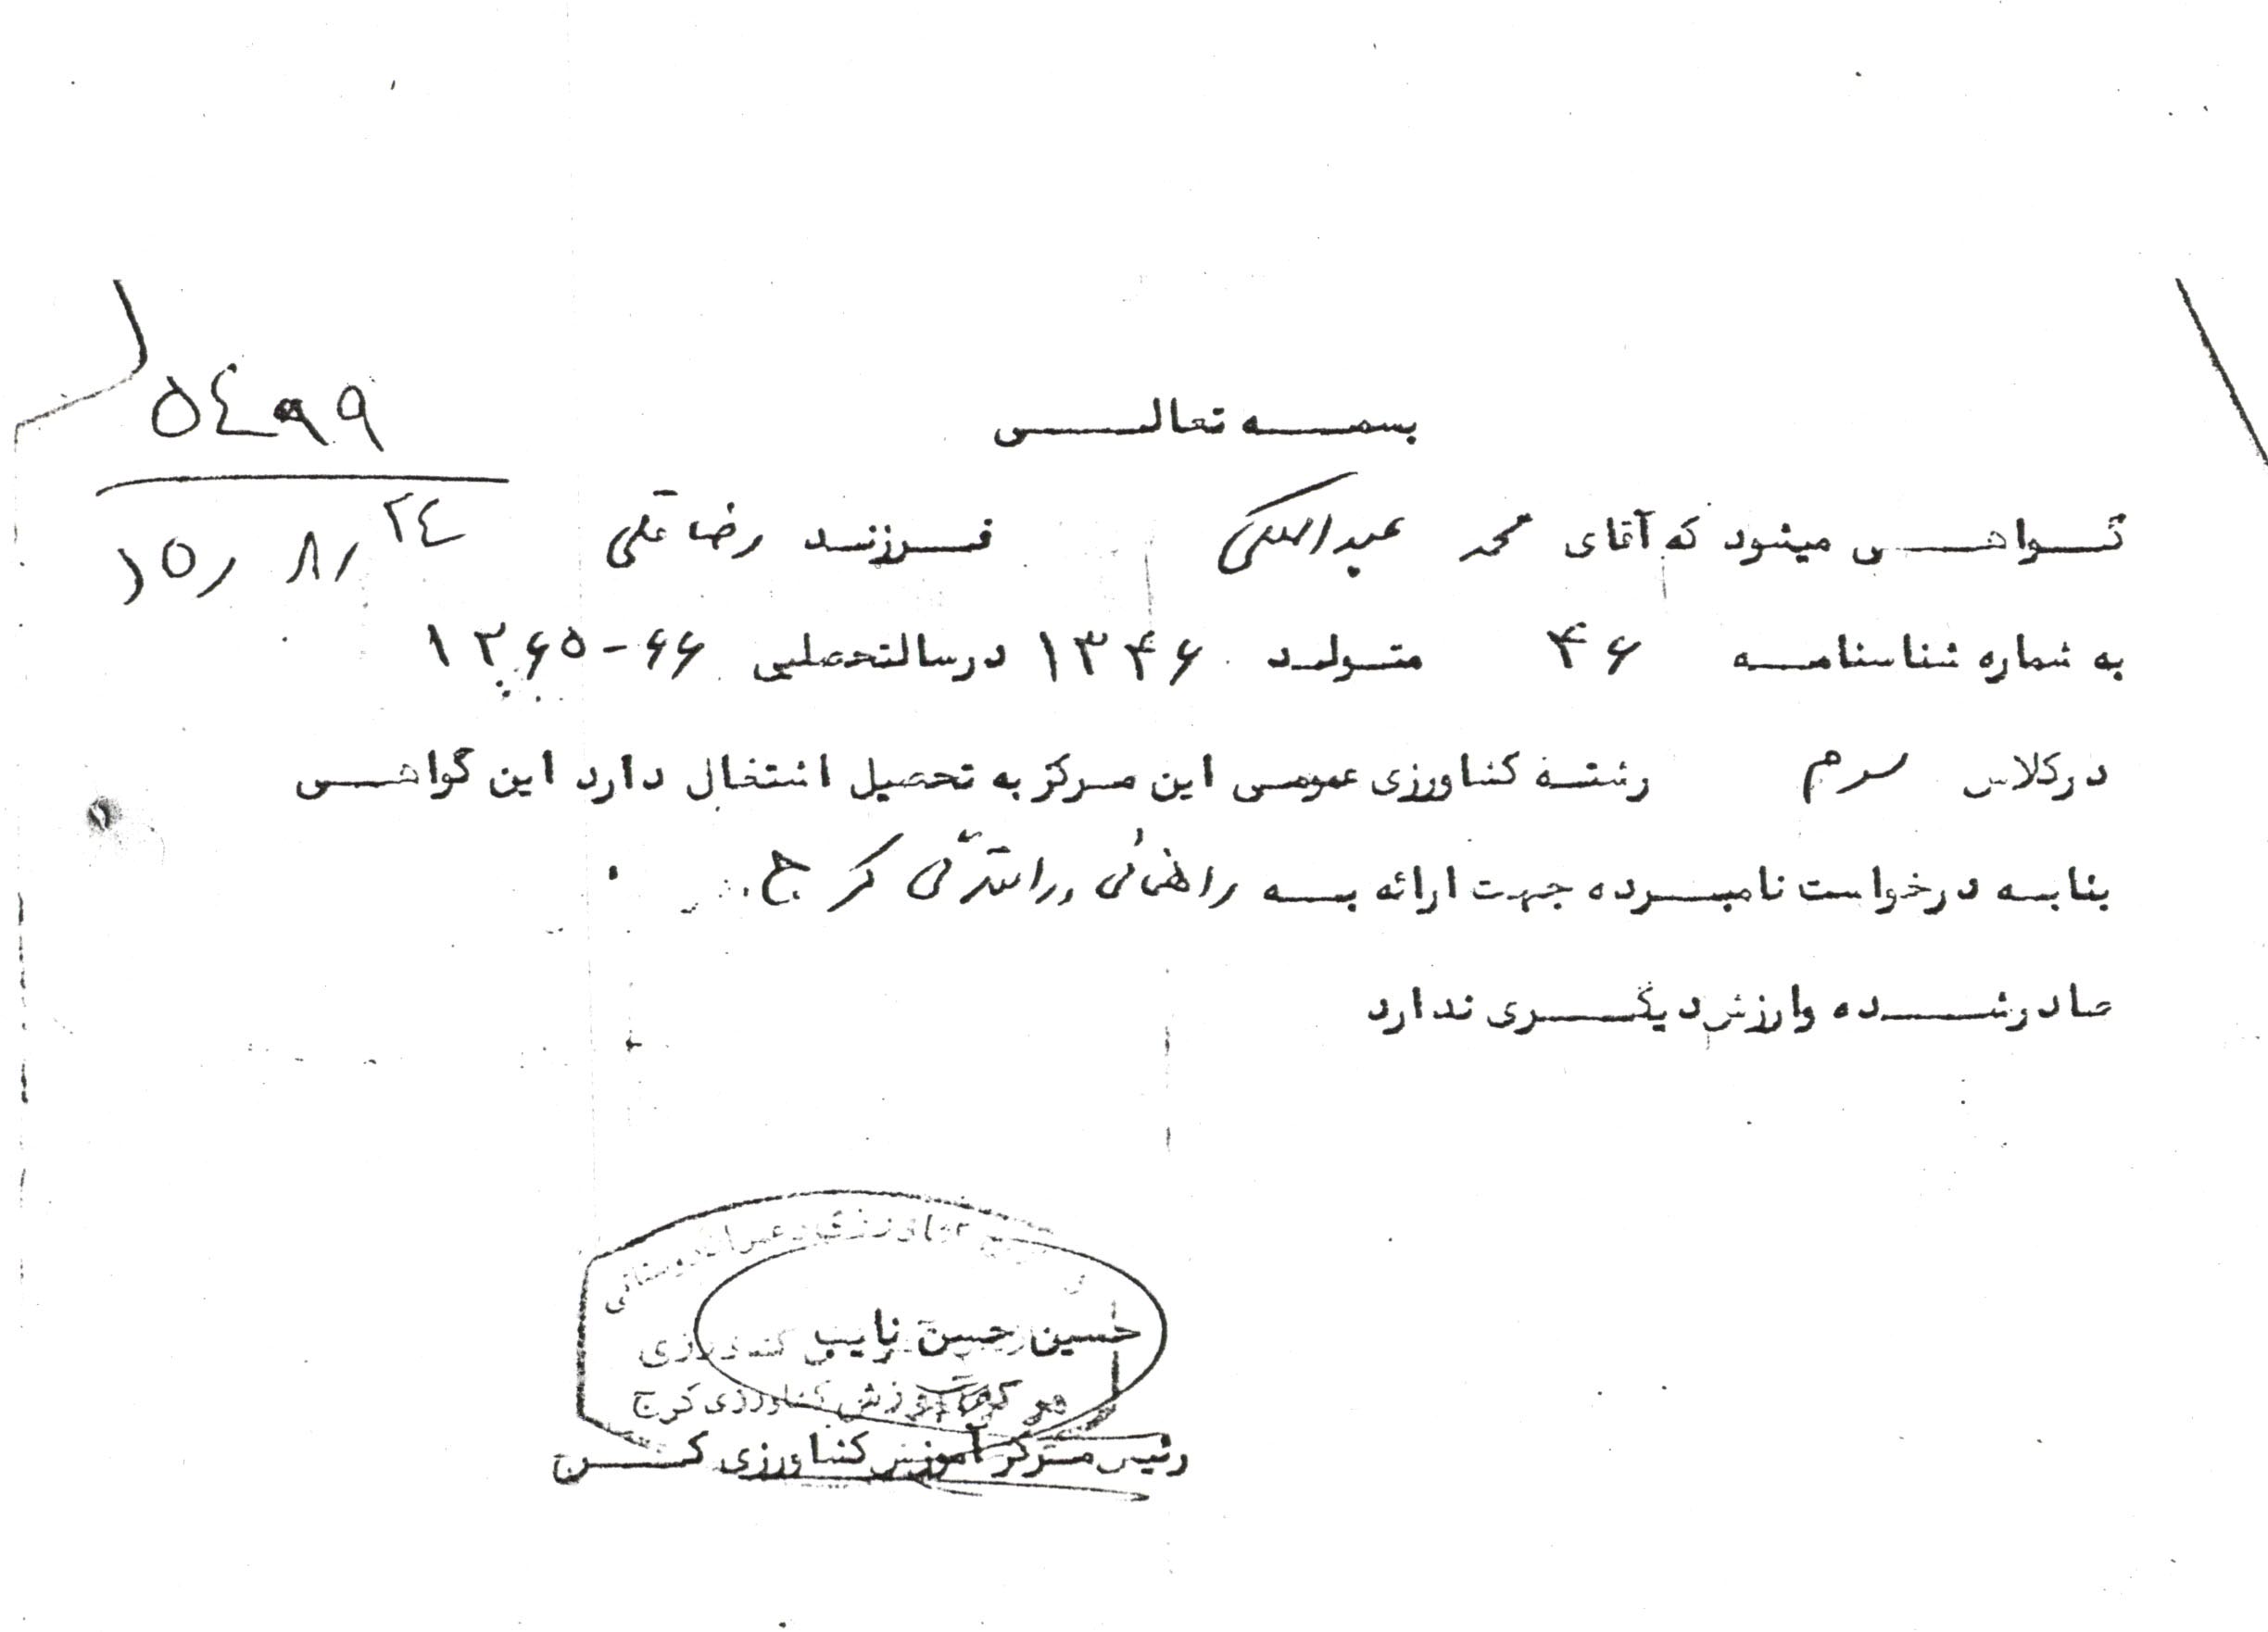 ۵۴۹۹
بسمه تعالی
۲۴ /۸ /۶۵
گواهی میشود که آقای محمد عبدالملکی فرزند رضاقلی
به شماره شناسنامه ۴۶ متولد ۱۳۴۶ درسالتحصلیی ۶۶-۱۳۶۵
درکلاس سوم رشته کشاورزی عمومی این مرکز به تحصیل اشتغال دارد این گواهی
بنابه درخواست نامبرده جهت ارائه به راهنمائی ورانندگی کرج
صادرشده وارزش دیگری ندارد
حسین حسن نایب
مرکز آموزش کشاورزی کرج
رئیس مرکز آموزش کشاورزی کرج